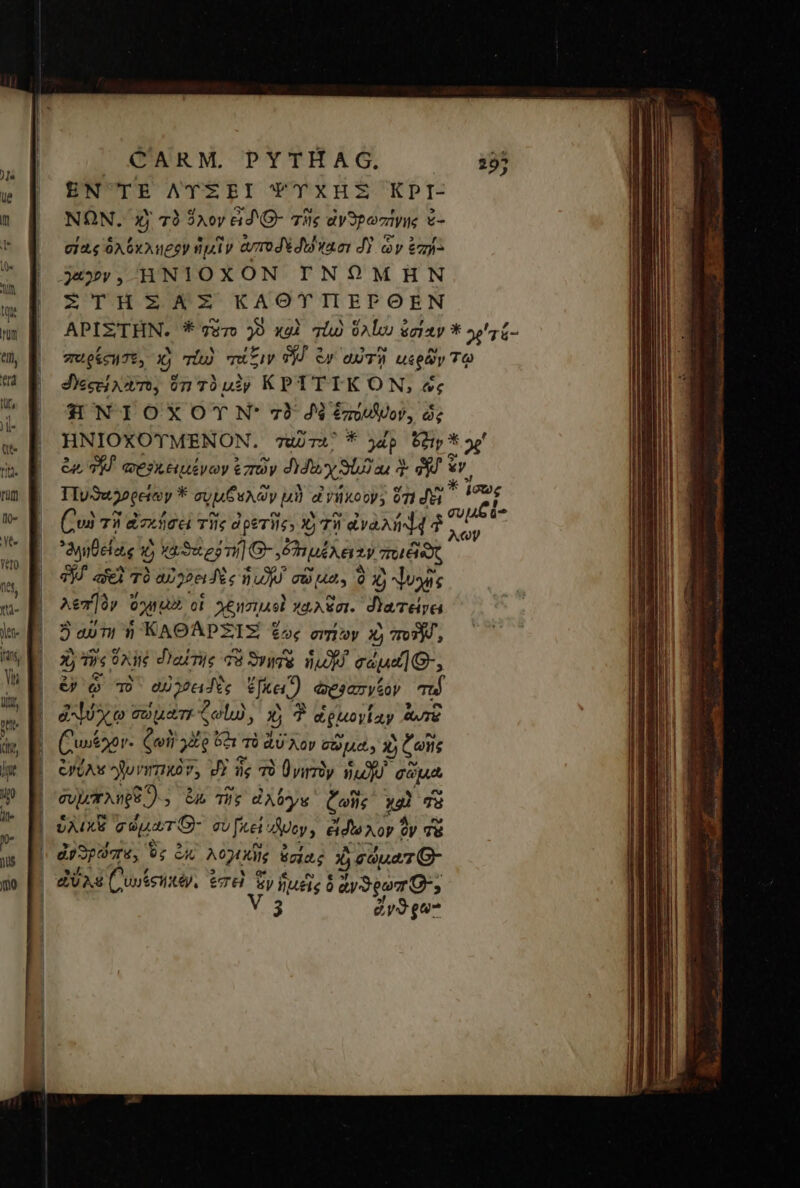 CARM. PYTHAG. 293
ΕΝ ΤΕ ΛΥΣΕΙ ΨΥΧΗΣ ΚΡΙ-
ΝΩΝ. καὶ τὸ ὅλον εἶδος τῆς ἀνθρωπίνης οὐ-
σίας ὁλόκληρον ἡμῖν ἀποδεδώκασι δι' ὧν ἐπή-
γαγον, ΗΝΙΟΧΟΝ ΓΝΩΜΗΝ
ΣΤΗΣΑΣ ΚΑΘΥΠΕΡΘΕΝ
ΑΡΙΣΤΗΝ. * τοῦτο γὸ καὶ τὴν ὅλην οὐσίαν * γρ' τέ-
παρέστησε, καὶ τὴν τάξιν τῶν ἐν αὐτῇ μερῶν τῷ
διεστείλατο, ὅτι τὸ μὲν ΚΡΙΤΙΚΟΝ, ὡς
ΗΝΙΟΧΟΥΝ· τὸ δὲ ἑπόμενον, ὡς
ΗΝΙΟΧΟΥΜΕΝΟΝ. ταῦτα * γάρ ἔστιν * γρ'
ἐκ τῶν προκειμένων ἐπῶν διδαχθῆναι τ τῶν οὖν
Πυθαγορείων * συμβυλῶν μὴ ἀνήκοον, ὅτι δεῖ * ἴσως
συμβό-
λων
Συὺ τῇ ἀσκήσει τῆς ἀρετῆς, καὶ τῇ ἀναλήψει τ
ἀληθείας καὶ καθαρότητος, ἐπιμέλειαν ποιεῖσθαι
τῶν περὶ τὸ αὐγοειδὲς ἡμῶν σῶμα, ὃ καὶ ψυχῆς
λεπτὸν ὄχημα οἱ χρησμοὶ καλοῦσι. διατείνει
ὃ αὕτη ἡ ΚΑΘΑΡΣΙΣ ἕως σιτίων καὶ ποτῶν,
καὶ τῆς ὅλης διαίτης τοῦ θνητοῦ ἡμῶν σώματος,
ἐν ᾧ τὸ αὐγοειδὲς ἔγκειται προσπνέον τῷ
ἀψύχῳ σώματι ζωὴν, καὶ τ ἁρμονίαν αὐτοῦ
Συνέχον. ζωὴ γάρ ὅτι τὸ ἄϋλον σῶμα, καὶ ζωῆς
ἐνύλου γεννητικὸν, δι' ἧς τὸ θνητὸν ἡμῶν σῶμα
συμπληροῦται, ἐκ τῆς ἀλόγου ζωῆς καὶ τοῦ
ὑλικοῦ σώματος συγκείμενον, εἴδωλον ὂν τοῦ
ἀνθρώπου, ὃς ἐκ λογικῆς οὐσίας καὶ σώματος
ἀΰλου Συνέστηκεν. ἐπεὶ οὖν ἡμεῖς ὁ ἄνθρωπος,
V 3 ἄνθρω-